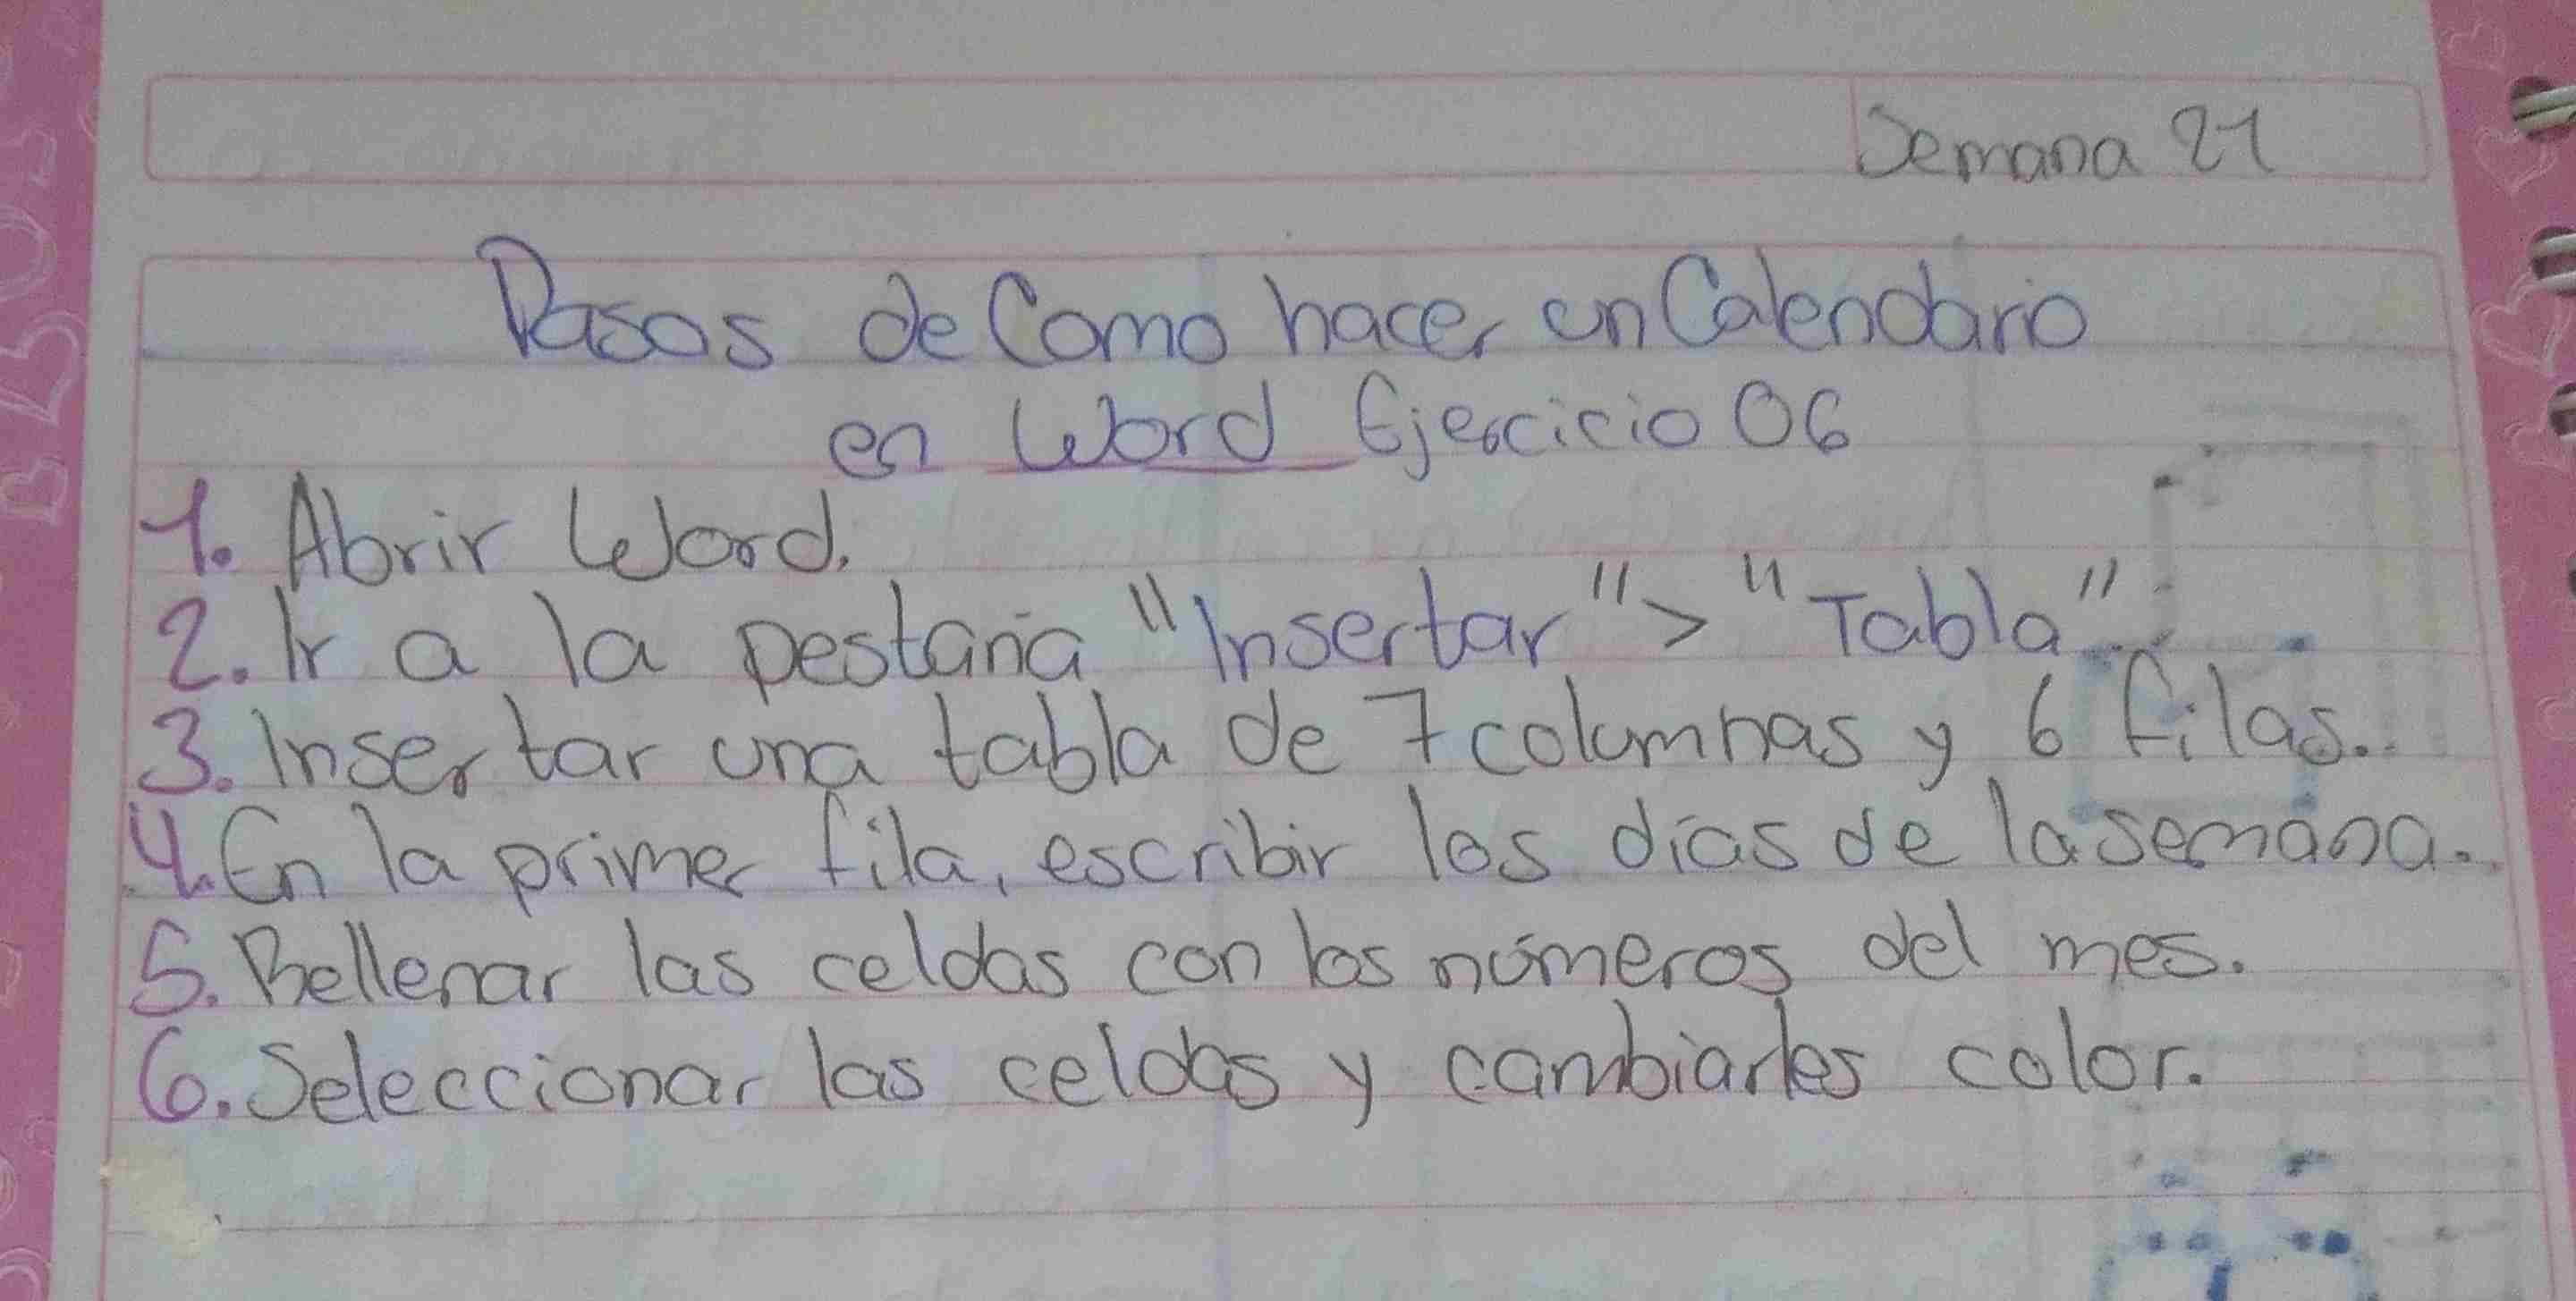 Semana 21
Pasos de Como hacer un Calendario
en Word Ejercicio 06
1. Abrir Word.
2. Ir a la pestaña "Insertar" > "Tabla".
3. Insertar una tabla de 7 columnas y 6 filas.
4. En la primer fila, escribir los días de la semana.
5. Rellenar las celdas con los números del mes.
6. Seleccionar las celdas y cambiarles color.